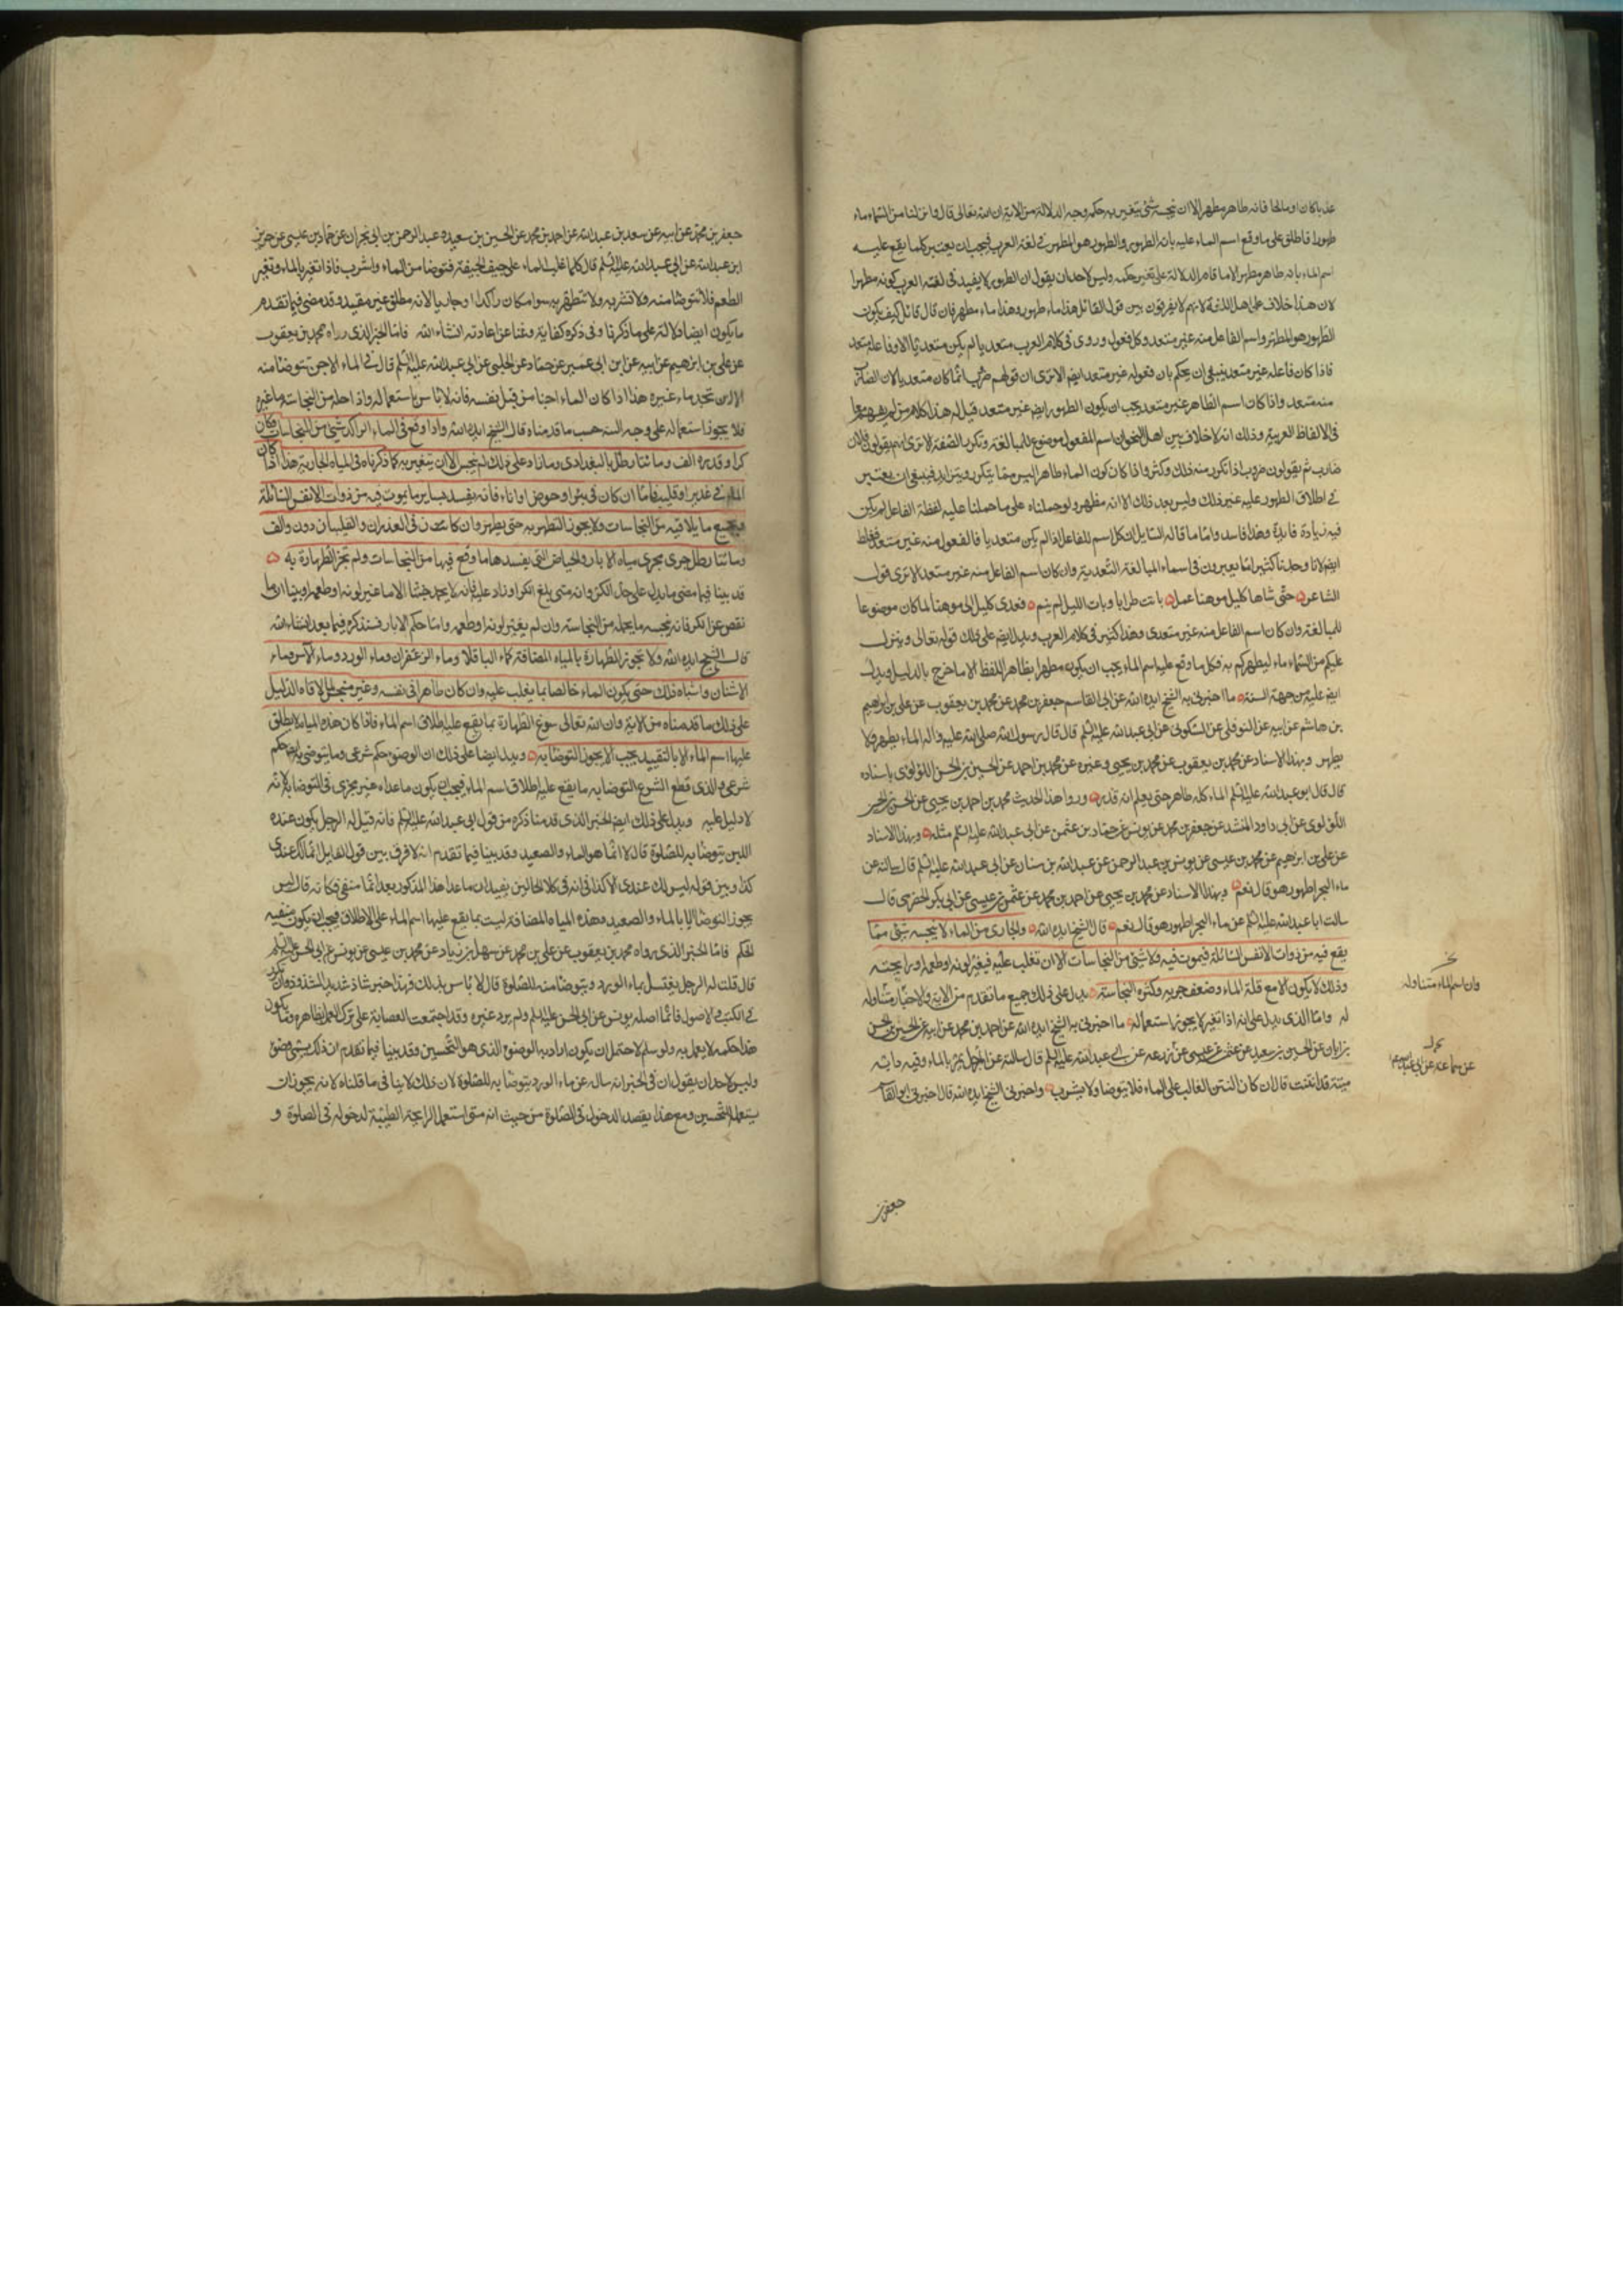 عذبا كان او مالحا فانه طاهر مطهر الا ان نجسه شئ يتغير به حكمه وجه الدلالة من الاية ان الله تعالى قال وانزلنا من السماء ماء
طهورا فاطلق على ما وقع اسم الماء عليه بانه الطهور والطهور هو المطهر في لغة العرب فيجب ان يعتبر كلما يقع عليه
اسم الماء بانه طاهر مطهر الا ما قام الدلالة على تغير حكمه وليس لاحد ان يقول ان الطهور لا يفيد في لغة العرب كونه مطهرا
لان هذا خلاف على اهل اللغة لانهم لا يفرقون بين قول القائل هذا ماء طهور وهذا ماء مطهر فان قال قائل كيف يكون
الطهور هو المطهر واسم الفاعل منه غير متعد وكل فعول ورد في كلام العرب متعديا لم يكن متعديا الا وفاعله متعد
فاذا كان فاعله غير متعد ينبغي ان يحكم بان فعوله غير متعد ايضا الا ترى ان قولهم ضروب انما كان متعديا لان الضارب
منه متعد واذا كان اسم الطاهر غير متعد يجب ان يكون الطهور ايضا غير متعد قيل له هذا كلام من لم يفهم معا
في الالفاظ العربية وذلك انه لا خلاف بين اهل النحو ان اسم المفعول موضوع للمبالغة وتكرر الصفة الا ترى انهم يقولون فلان
ضارب ثم يقولون ضروب اذا تكرر منه ذلك وكثر واذا كان كون الماء طاهرا ليس مما يتكرر ويتزايد فينبغي ان يعتبر
في اطلاق الطهور عليه غير ذلك وليس بعد ذلك الا انه مطهر ولو حملناه على ما حملنا عليه لفظة الفاعل لم يكن
فيه زيادة فايدة وهذا فاسد واما ما قاله السايل ان كل اسم للفاعل اذا لم يكن متعديا فالفعول منه غير متعد فغلط
ايضا لانا وجدنا كثيرا ما يعبرون في اسماء المبالغة التعدية وان كان اسم الفاعل منه غير متعد الا ترى قول
الشاعر حتى شاها كليل موهنا عمل باتت طرابا وبات الليل لم ينم فعدى كليل الى موهنا لما كان موضوعا
للمبالغة وان كان اسم الفاعل منه غير متعدى وهذا كثير في كلام العرب ويدل ايضا على ذلك قوله تعالى وينزل
عليكم من السماء ماء ليطهركم به فكل ما وقع عليه اسم الماء يجب ان يكون مطهرا بظاهر اللفظ الا ما خرج بالدليل ويدل
ايضا عليه من جهة السنة ما اخبرني به الشيخ ايده الله عن ابي القاسم جعفر بن محمد عن محمد بن يعقوب عن علي بن ابراهيم
بن هاشم عن ابيه عن النوفلي عن السكوني عن ابي عبد الله عليه السلم قال قال رسول الله صلى الله عليه واله الماء يطهر ولا
يطهر وبهذا الاسناد عن محمد بن يعقوب عن محمد بن يحيى وغيره عن محمد بن احمد عن الحسين بن الحسن اللؤلؤى باسناده
قال قال ابو عبد الله عليه السلم الماء كله طاهر حتى يعلم انه قذر وروا هذا الحديث محمد بن احمد بن يحيى عن الحسن بن الحسين
اللؤلوى عن ابي داود المنشد عن جعفر بن محمد عن يونس عن حماد بن عثمن عن ابي عبد الله عليه السلم مثله وبهذا الاسناد
عن علي بن ابرهيم عن محمد بن عيسى عن يونس بن عبد الرحمن عن عبد الله بن سنان عن ابي عبد الله عليه السلم قال سالته عن
ماء البحر اطهور هو قال نعم وبهذا الاسناد عن محمد بن يحيى عن احمد بن محمد عن عثمن بن عيسى عن ابي بكر الحضرمى قال
سالت ابا عبد الله عليه السلم عن ماء البحر اطهور هو قال نعم قال الشيخ ايده الله والجارى من الماء لا ينجسه شئ مما
يقع فيه من ذوات الانفس السائلة فيموت فيه ولا شئ من النجاسات الا ان تغلب عليه فيغير لونه او طعمه او رايحته
وذلك لا يكون الا مع قلة الماء وضعف جريه وكثرة النجاسة يدل على ذلك جميع ما تقدم من الاية والاخبار متناوله
له واما الذى يدل على انه اذا تغير لا يجوز استعماله ما اخبرني به الشيخ ايده الله عن احمد بن محمد عن ابيه عن الحسين بن الحسن
بن ابان عن الحسين بن سعيد عن عثمن بن عيسى عن زرعه عن ابي عبد الله عليه السلم قال سالته عن الرجل يمر بالماء وفيه دابة
ميتة قد انتنت قال ان كان النتن الغالب على الماء فلا يتوضا ولا يشرب واخبرني الشيخ ايده الله قال اخبرني ابو القاسم
وان اسم الماء متناوله
عن سماعة عن ابي عبد الله
جعفر بن
جعفر بن محمد عن ابيه عن سعد بن عبد الله عن احمد بن محمد عن الحسين بن سعيد وعبد الرحمن بن ابي نجران عن حماد بن عيسى عن حريز
ابن عبد الله عن ابي عبد الله عليه السلم قال كلما غلب الماء على ريح الجيفة فتوضا من الماء واشرب فاذا تغير الماء وتغير
الطعم فلا تتوضا منه ولا تشربه ولا تتطهر به سوا مكان راكدا او جاريا لانه مطلق غير مقيد وقد مضى فيما تقدم
ما يكون ايضا دلالة على ما ذكرنا وفي ذكره كفاية وغنا عن اعادته انشاء الله فاما الخبر الذى رواه محمد بن يعقوب
عن علي بن ابرهيم عن ابيه عن ابن ابي عمير عن حماد عن الحلبي عن ابي عبد الله عليه السلم قال في الماء الاجن تتوضا منه
الا ان تجد ماء غيره هذا اذا كان الماء اجنا من قبل نفسه فانه لا باس باستعماله واذا حله من النجاسة ما غيره
فلا يجوز استعماله على وجه البتة حسب ما قدمناه قال الشيخ ايده الله واذا وقع في الماء الراكد شئ من النجاسات وكان
كرا وقدره الف ومائتا رطل بالبغدادى وما زاد على ذلك لم ينجس الا ان يتغير به كما ذكرناه في المياه الجارية هذا اذا كان
الماء في غدير او قليب فاما ان كان في بئر او حوض او اناء فانه يفسد بساير ما يموت فيه من ذوات الانفس السائلة
وبجميع ما يلاقيه من النجاسات ولا يجوز التطهر به حتى يطهر وان كان الماء في الغدران والقلبان دون الف
ومائتا رطل جرى مجرى مياه الابار والحياض التى يفسدها ما وقع فيها من النجاسات ولم تجز الطهارة به
قد بينا فيما مضى ما يدل على حد الكر وانه متى بلغ الكر او زاد عليه فانه لا يحمل خبثا الا ما غير لونه او طعمه او بينا ان ما
نقص عن الكر فانه ينجسه ما يحمله من النجاسة وان لم يغير لونه او طعمه واما حكم الابار فسنذكره فيما بعد انشاء الله
قال الشيخ ايده الله ولا تجوز الطهارة بالمياه المضافة كماء الباقلا وماء الزعفران وماء الورد وماء الآس وماء
الاشنان واشباه ذلك حتى يكون الماء خالصا مما يغلب عليه وان كان طاهرا في نفسه وغير منجس لما لاقاه الدليل
على ذلك ما قدمناه من الاية وان الله تعالى سوغ الطهارة بما يقع عليه اطلاق اسم الماء فاذا كان هذه المياه لا يطلق
عليها اسم الماء الا بالتقييد يجب الا يجوز التوضا به ويدل ايضا على ذلك ان الوضوء حكم شرعى وما يتوضى به ايضا حكم
شرعى والذى قطع الشرع التوضا به ما يقع عليه اطلاق اسم الماء فيجب ان يكون ما عداه غير مجزى في التوضا به لانه
لا دليل عليه ويدل على ذلك ايضا الخبر الذى قدمنا ذكره من قول ابي عبد الله عليه السلم فانه قيل له الرجل يكون عنده
اللبن يتوضا به للصلوة قال لا انما هو الماء والصعيد وقد بينا فيما تقدم انه لا فرق بين قول القايل انما لك عندى
كذا وبين قوله ليس لك عندى الا كذا في انه في كلا الحالين يفيد ان ما عدا هذا المذكور بعد انما منفى فكانه قال ليس
يجوز التوضا الا بالماء والصعيد وهذه المياه المضافة ليست مما يقع عليها اسم الماء على الاطلاق فيجب ان يكون منفية
الحكم فاما الخبر الذى رواه محمد بن يعقوب عن علي بن محمد عن سهل بن زياد عن محمد بن عيسى عن يونس عن ابي الحسن عليه السلم
قال قلت له الرجل يغتسل بماء الورد ويتوضا منه للصلوة قال لا باس بذلك فهذا خبر شاذ شديد الشذوذ وان تكرر
في الكتب والاصول فانما اصله يونس عن ابي الحسن عليه السلم ولم يرد غيره وقد اجتمعت العصابة على ترك العمل بظاهره وما يكون
هذا حكمه لا يعمل به ولو سلم لاحتمل ان يكون اراد به الوضوء الذى هو التحسين وقد بينا فيما تقدم ان ذلك يسمى وضوء
وليس لاحد ان يقول ان في الخبر انه سال عن ماء الورد يتوضا به للصلوة لان ذلك لا ينافي ما قلناه لانه يجوز ان
يستعمل للتحسين ومع هذا يقصد الدخول في الصلوة من حيث انه متى استعمل الرايحة الطيبة لدخوله في الصلوة و